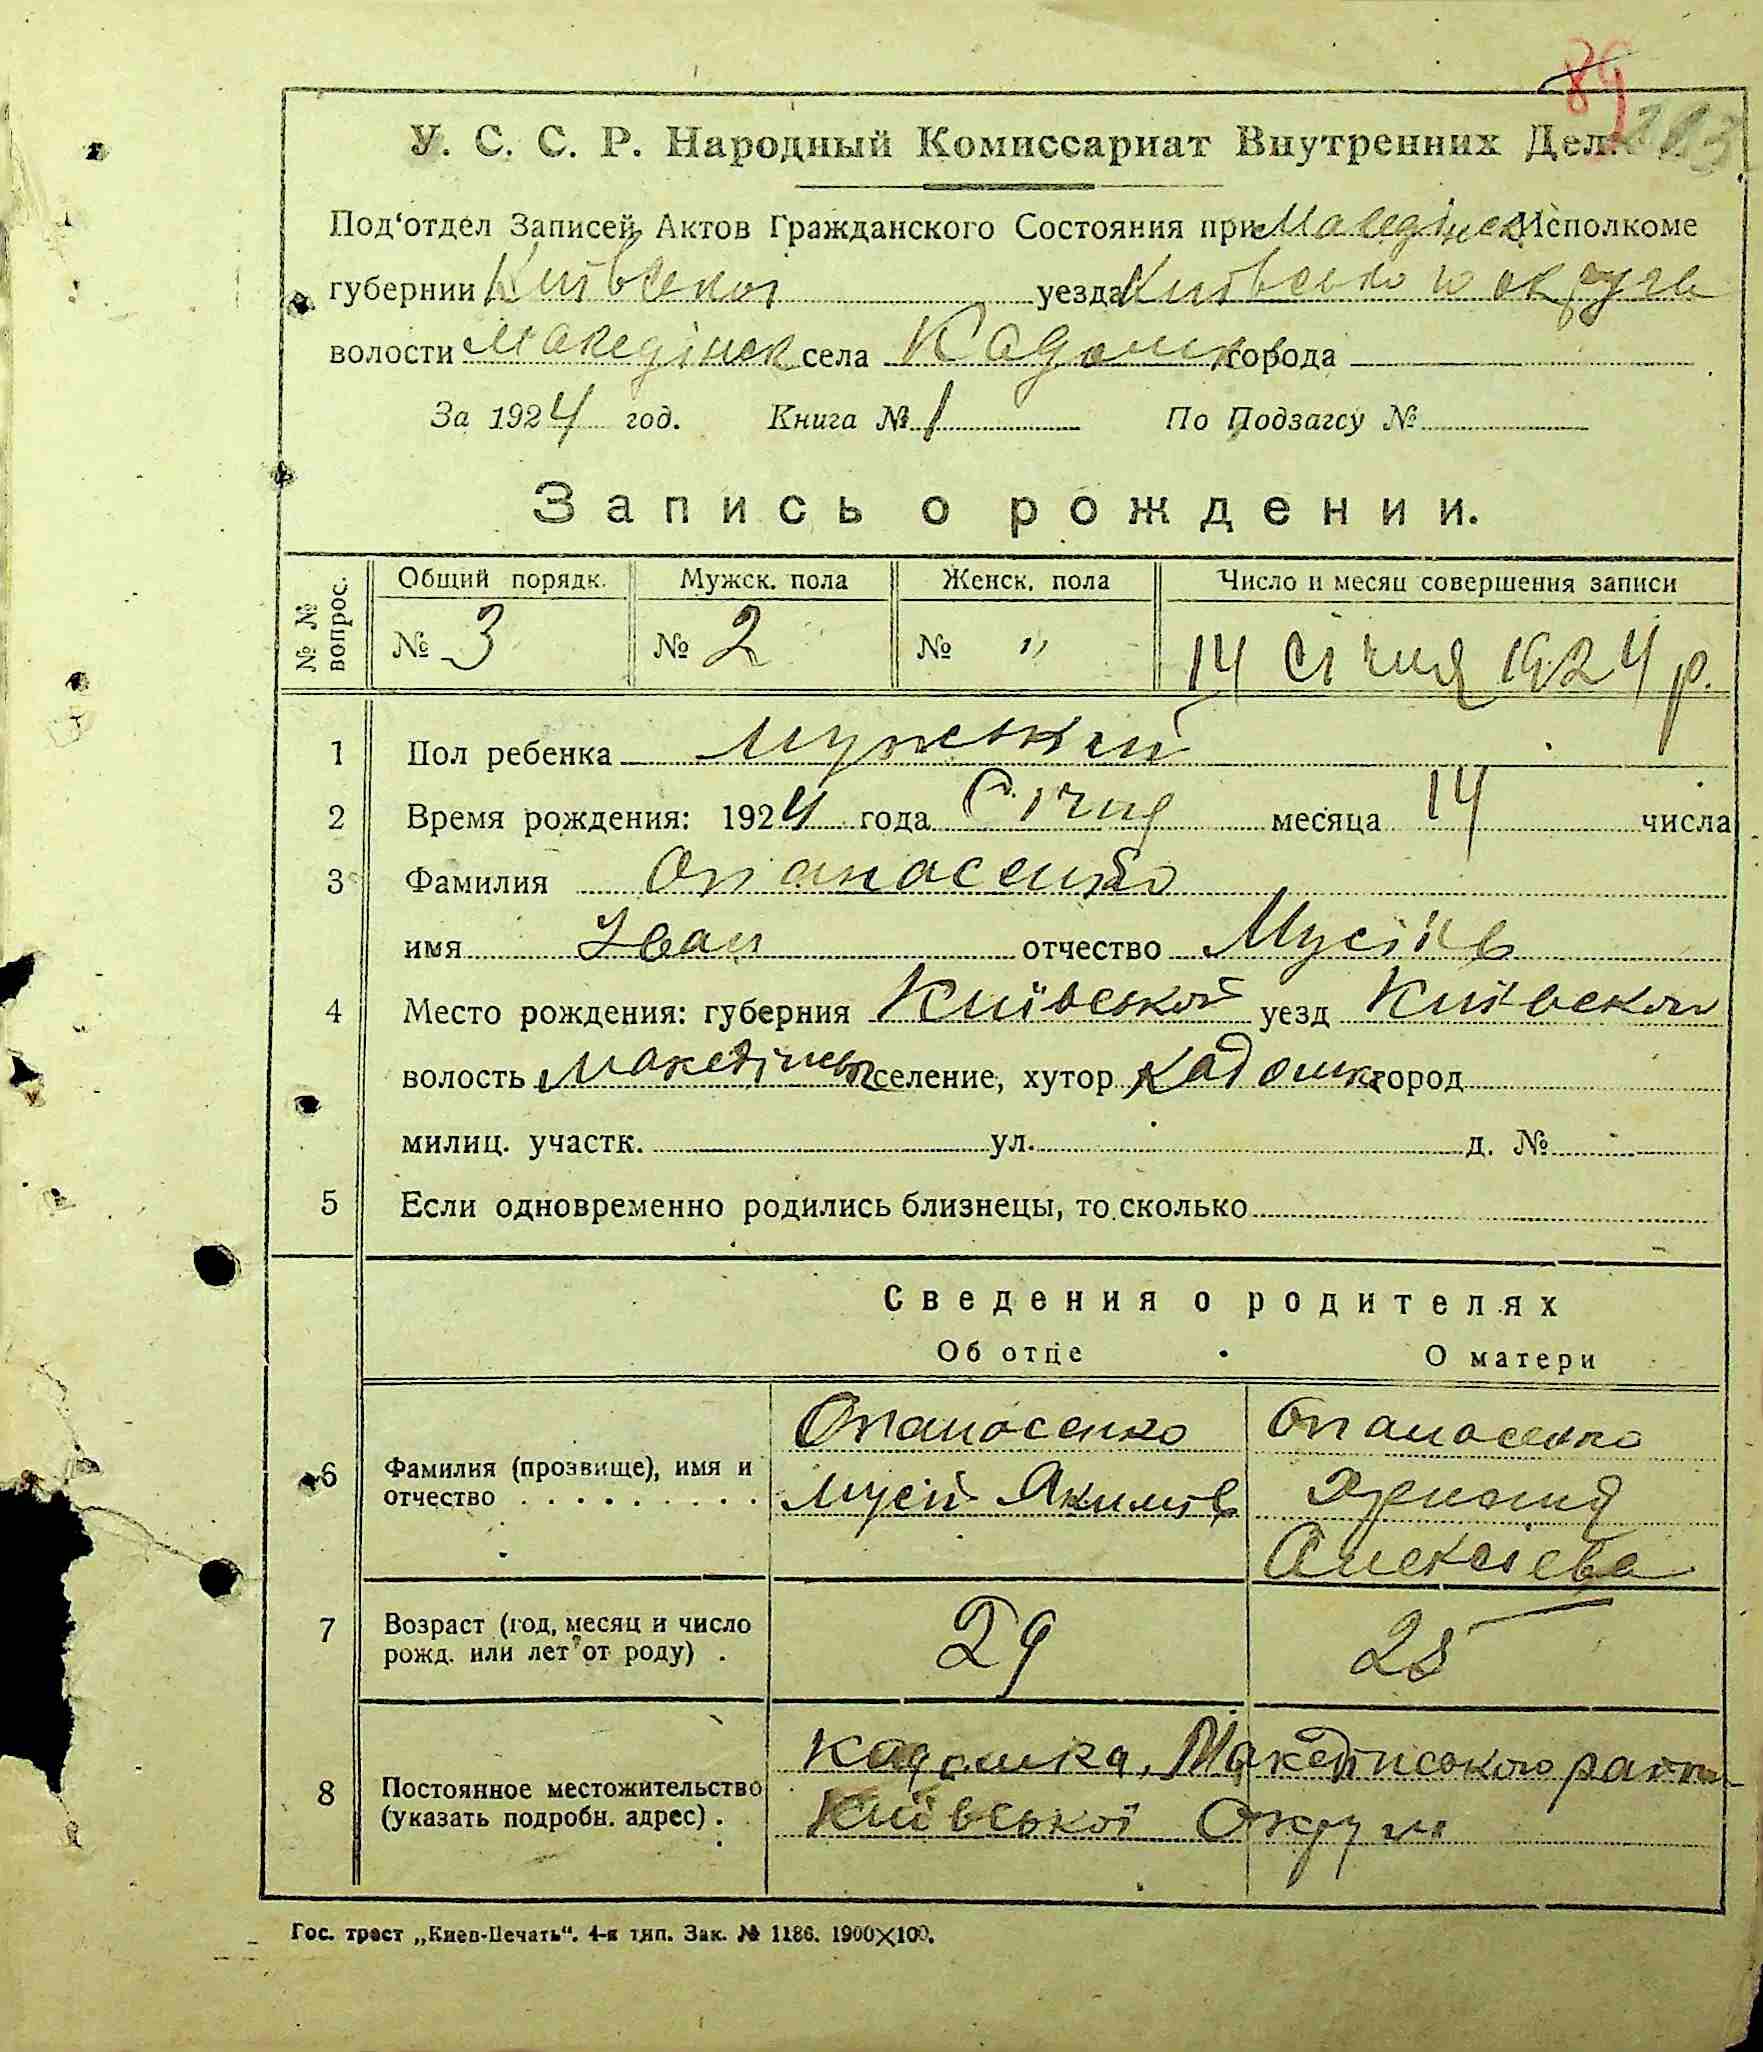 89
213
У. С. С. Р. Народный Комиссариат Внутренних Дел.
Под‘отдел Записей Актов Гражданского Состояния при Македінск Исполкоме
губернии Київської уезда Київсько го округи
волости Македінск села Кадомка города
За 1924 год. Книга № 1 По Подзагсу №
Запись о рождении.
№ № вопрос. Общий порядк. Мужск. пола Женск. пола Число и месяц совершения записи
№ 3 № 2 № " 14 Січня 1924 р.
1 Пол ребенка мужський
2 Время рождения: 1924 года Січня месяца 14 числа
3 Фамилия Опанасенко
имя Іван отчество Мусіїв
4 Место рождения: губерния Київської уезд Київской
волость Македінськ селение, хутор Кадомка город
милиц. участк. ул. д. №
5 Если одновременно родились близнецы, то сколько
Сведения о родителях
Об отце О матери
Опанасенко Опанасенко
6 Фамилия (прозвище), имя и отчество . . . . . . . . . Мусій Якимів
Алексієва
7 Возраст (год, месяц и число рожд. или лет от роду) . 29 28
8 Постоянное местожительство (указать подробн. адрес) . Кадомка, Македінського району
Київської Округи
Гос. трест „Киев-Печать“. 4-я тип. Зак. № 1186. 1900×100.